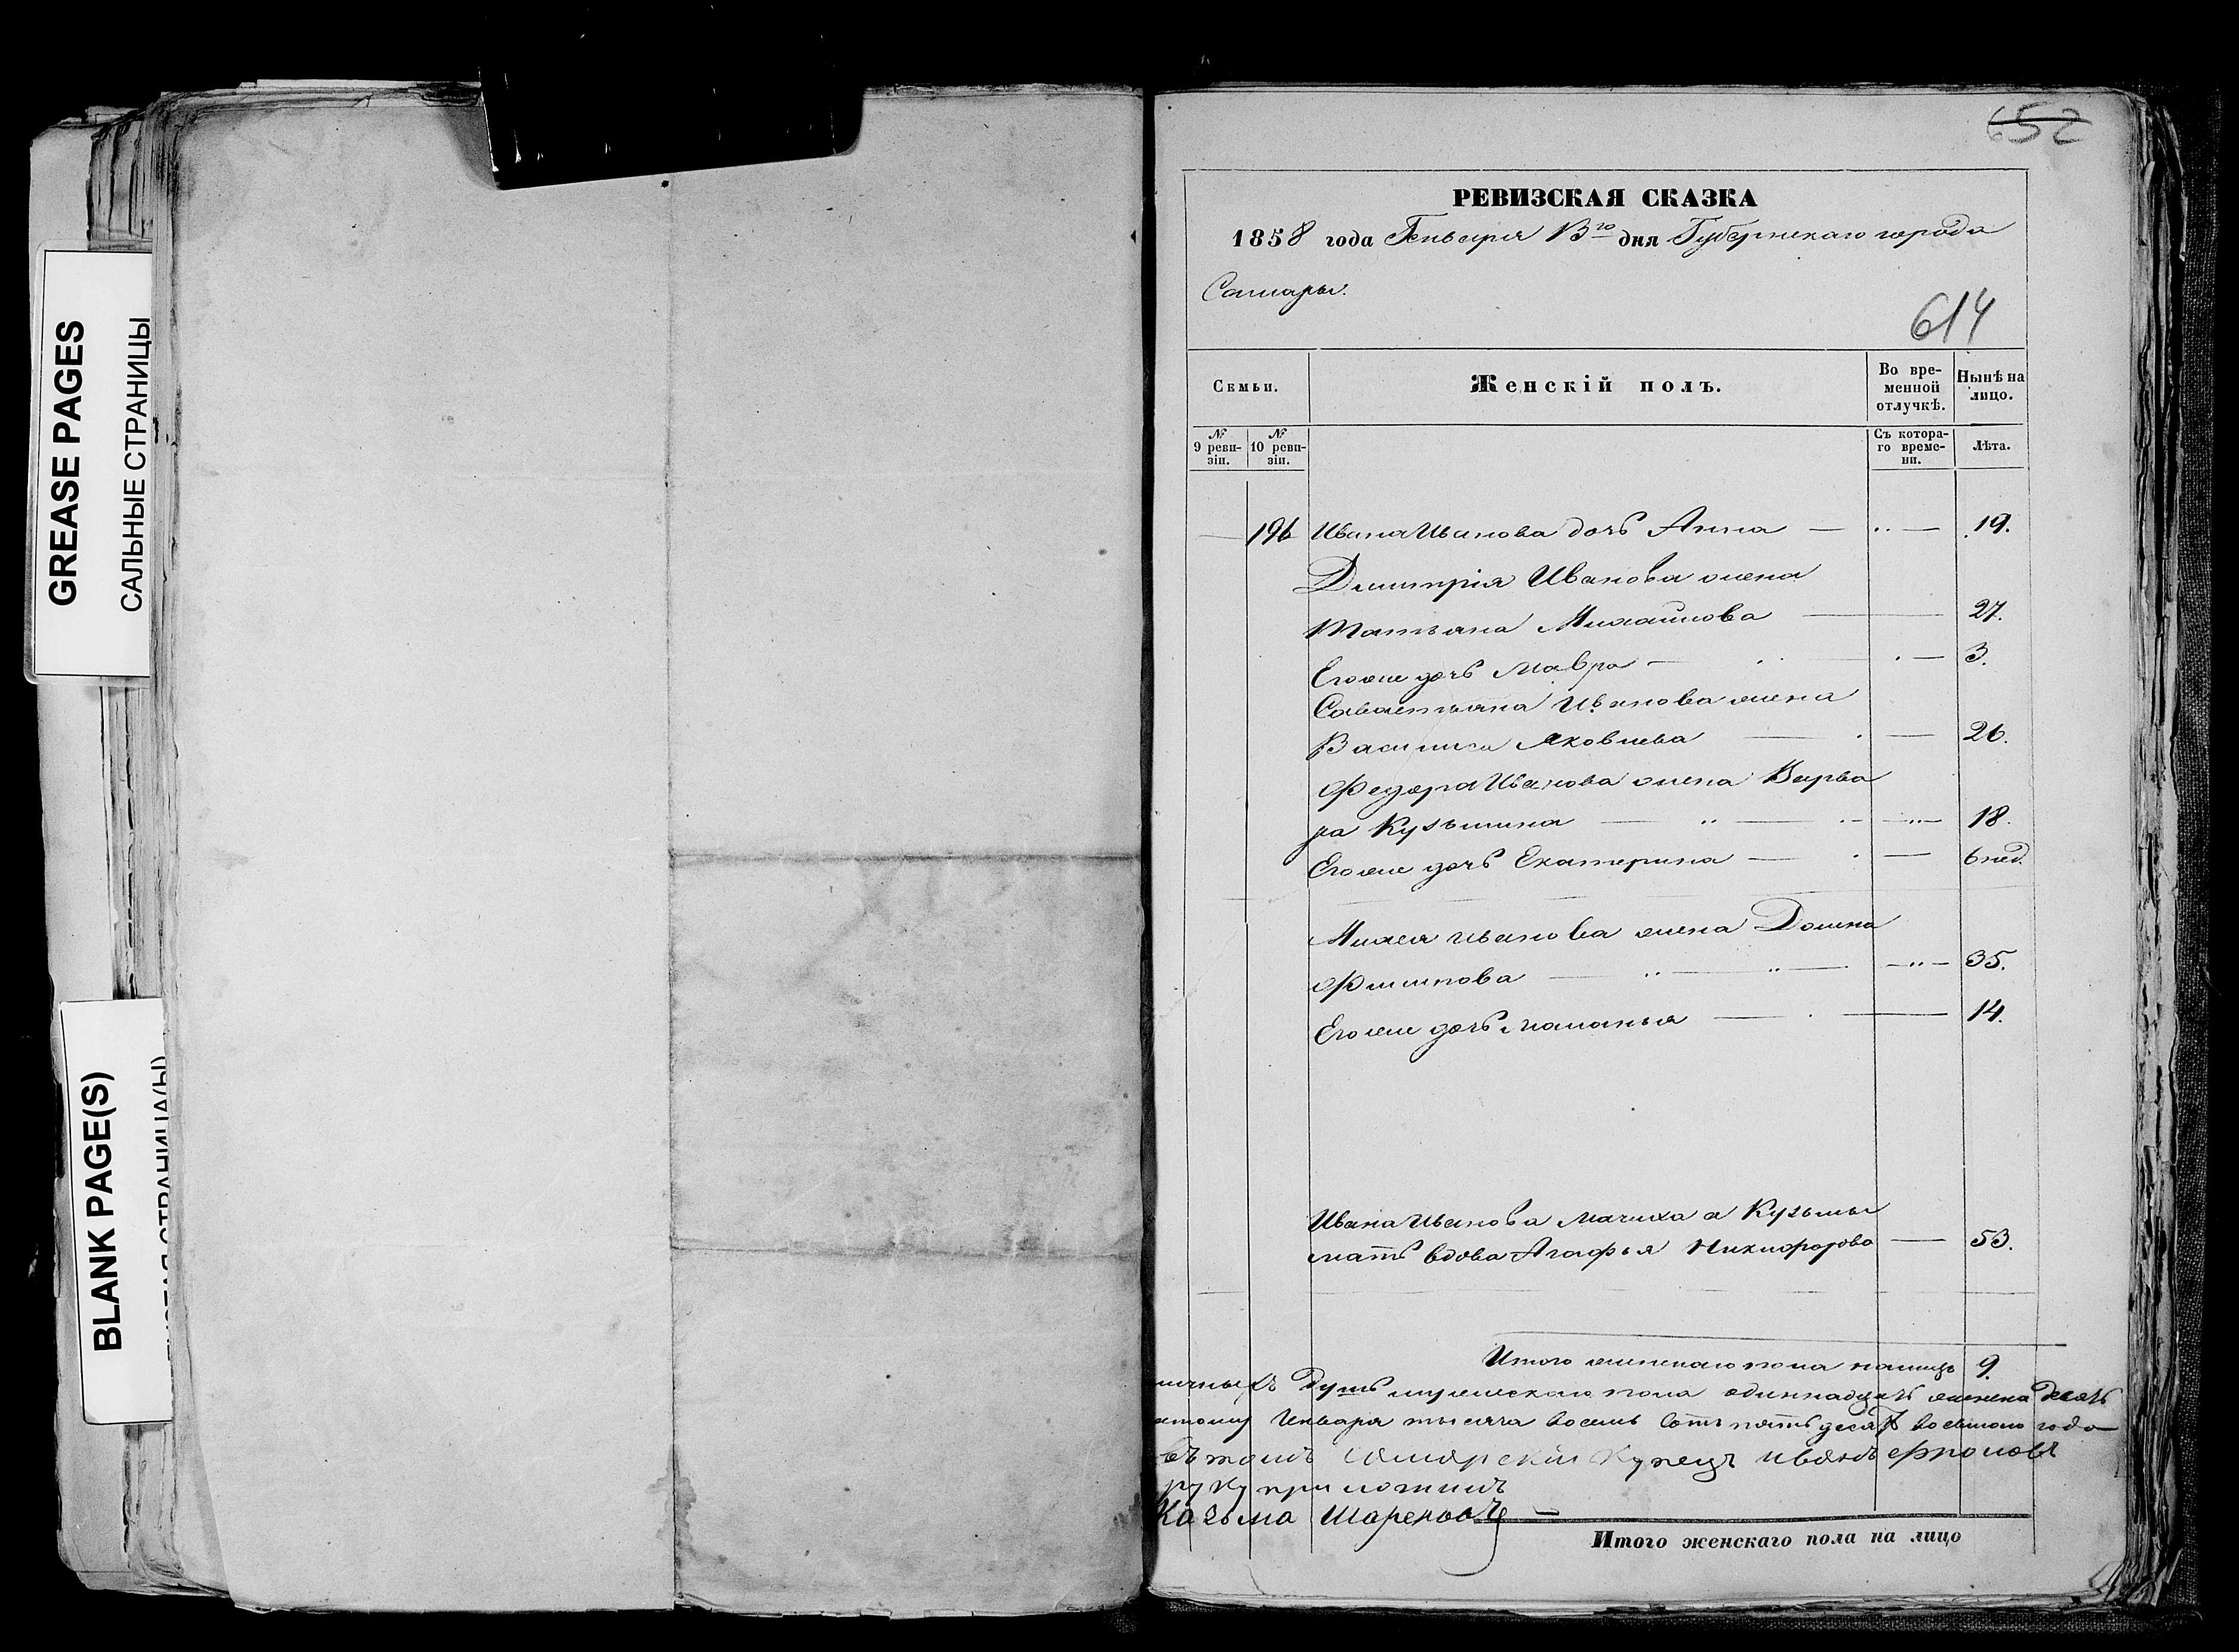 GREASE PAGES
САЛЬНЫЕ СТРАНИЦЫ
BLANK PAGE(S)
652
РЕВИЗСКАЯ СКАЗКА
1858 года Генваря дня Губернскаго города
Самары.
614
Семьи.
Женскій полъ.
Во вре-
менной
отлучкѣ.
Нынѣ на
лицо.
№
9 реви-
зіи.
№
10 реви-
зіи.
Съ котора-
го време-
ни.
Лѣта.
196 Ивана Иванова дочь Анна 19.
Димитрія Иванова жена
Татьяна Михайлова 27.
Его же дочь Мавра 3.
Савастьяна Иванова жена
Василиса Яковлева 26.
Федора Иванова жена Варва
ра Кузьмина 18.
Его же дочь Екатерина 6 нед.
Михея Иванова жена Домна
Филипова 35.
Его же дочь Маланья 14.
Ивана Иванова мачиха а Кузьмы
мать вдова Агафья Никифорова 53.
Итого женскаго пола налицо 9.
душъ мужескаго пола одиннадцать
Генваря тысяча восемь сотъ пятьдесят восьмого года
Самарскій Купецъ Иванъ Фроловъ
руку приложилъ
Казьма
Итого женскаго пола на лицо